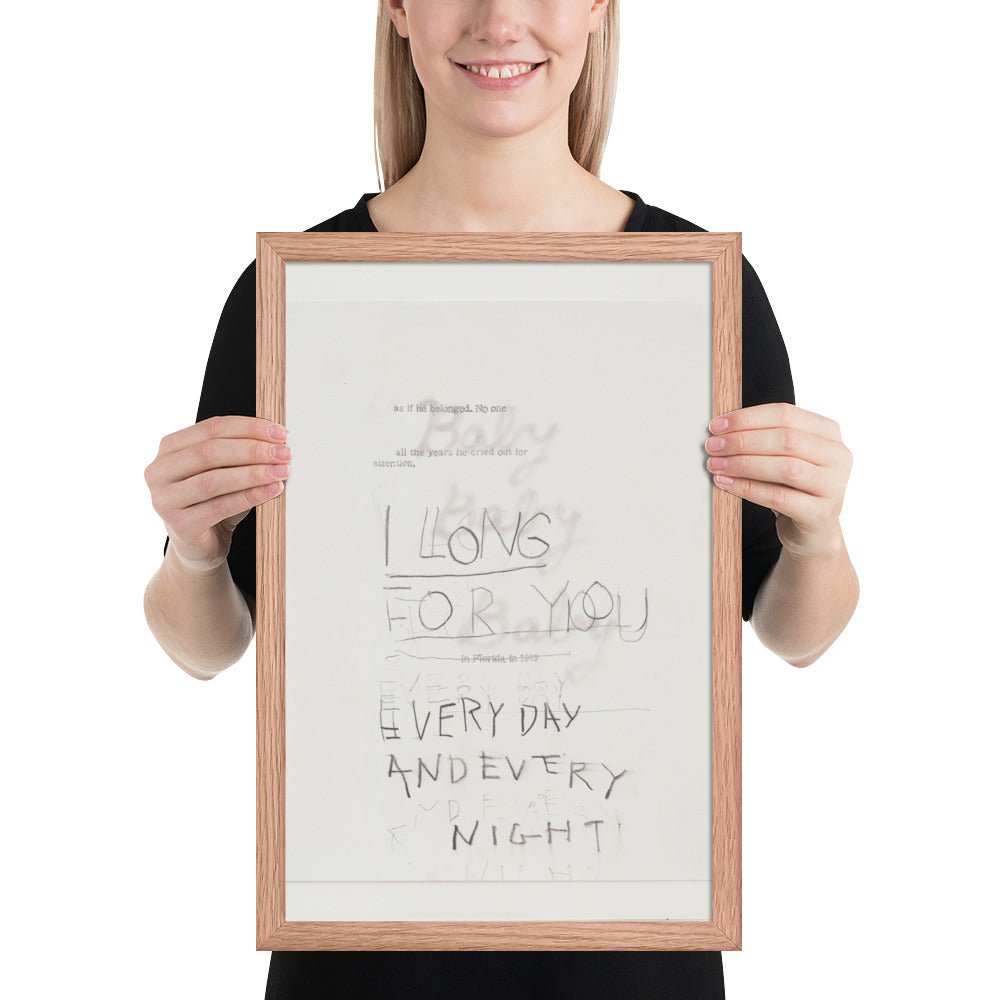 as if he belonged. No one
Baby
all the years he cried out for
attention,
Baby
I LONG
FOR YOU
Baby
in Florida in 1989
EVERY DAY
EVERY DAY
AND EVERY
ND EVERY
NIGHT
NIGHT